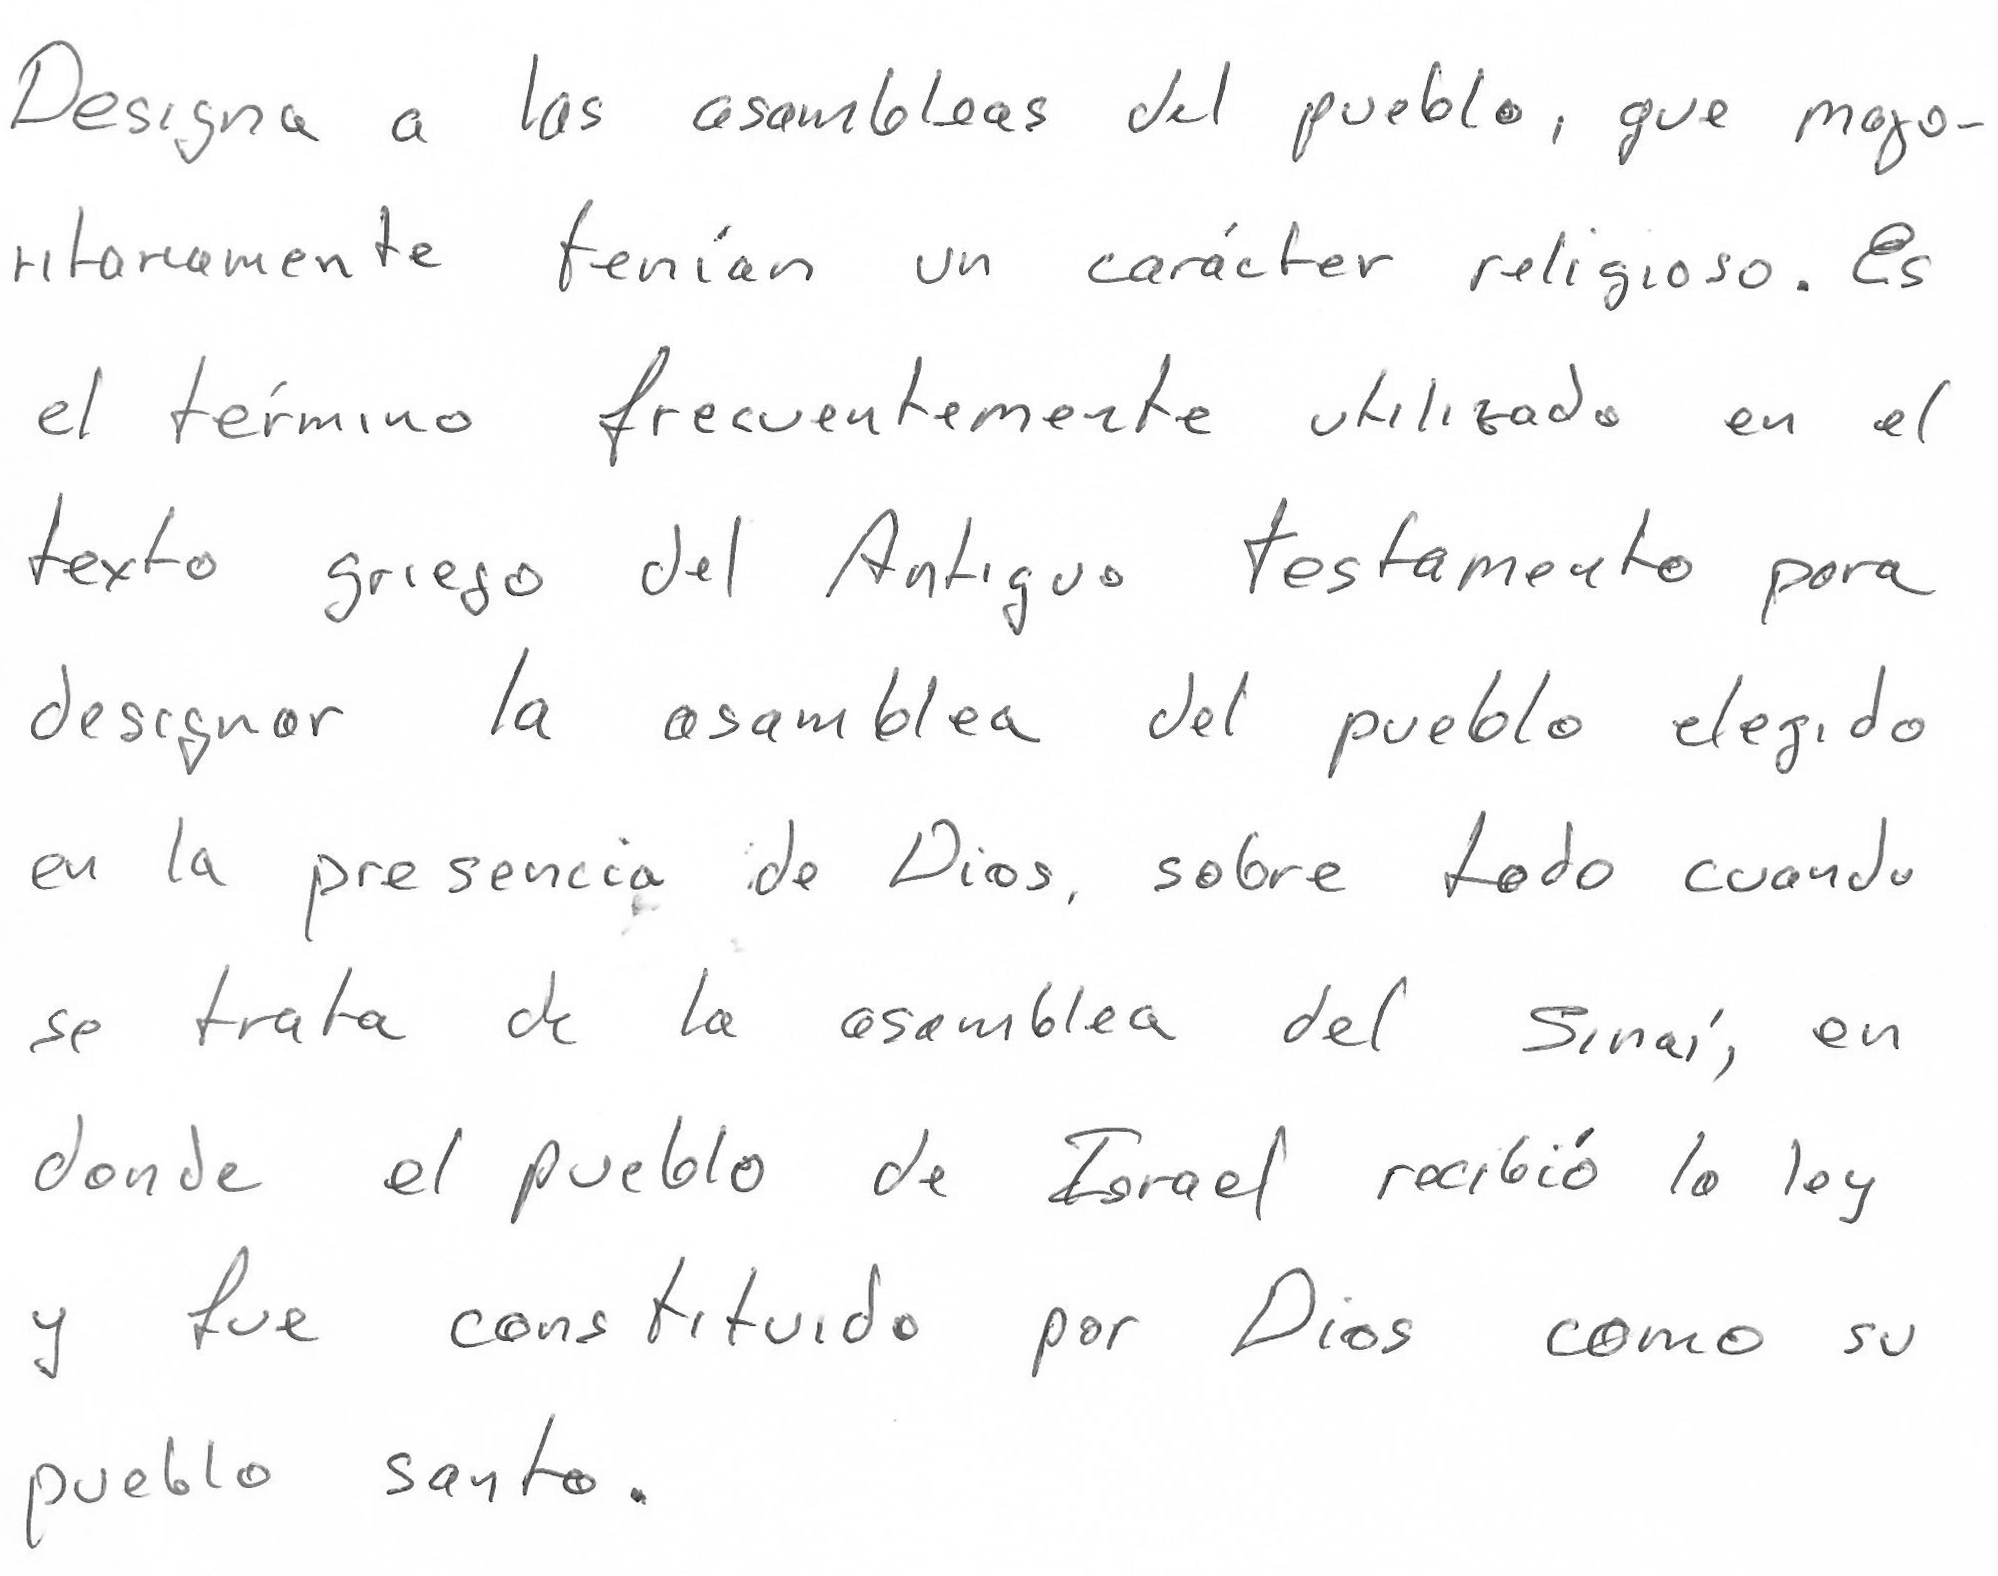 Designa a las asambleas del pueblo, que mayo-
ritariamente tenían un carácter religioso. Es
el término frecuentemente utilizado en el
texto griego del Antiguo Testamento para
designar la asamblea del pueblo elegido
en la presencia de Dios, sobre todo cuando
se trata de la asamblea del Sinaí, en
donde el pueblo de Israel recibió la ley
y fue constituido por Dios como su
pueblo santo.